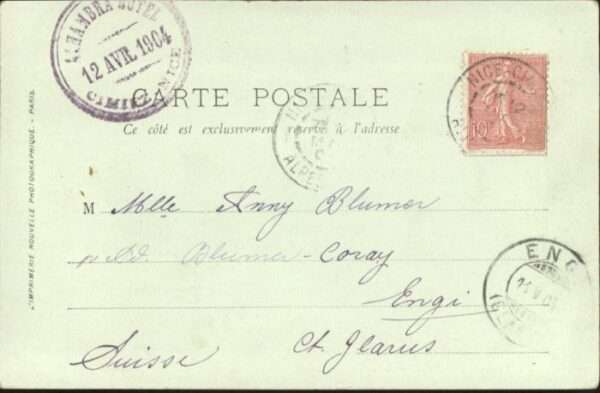 ALHAMBRA HOTEL
12 AVR. 1904
CIMIEZ-NICE
CARTE POSTALE
Ce côté est exclusivement réservé à l'adresse
10
ALPES
M Mlle Anny Blumer
Blumer-Coray
Engi
Suisse Ct. Glarus
ENG
L'IMPRIMERIE NOUVELLE PHOTOGRAPHIQUE - PARIS